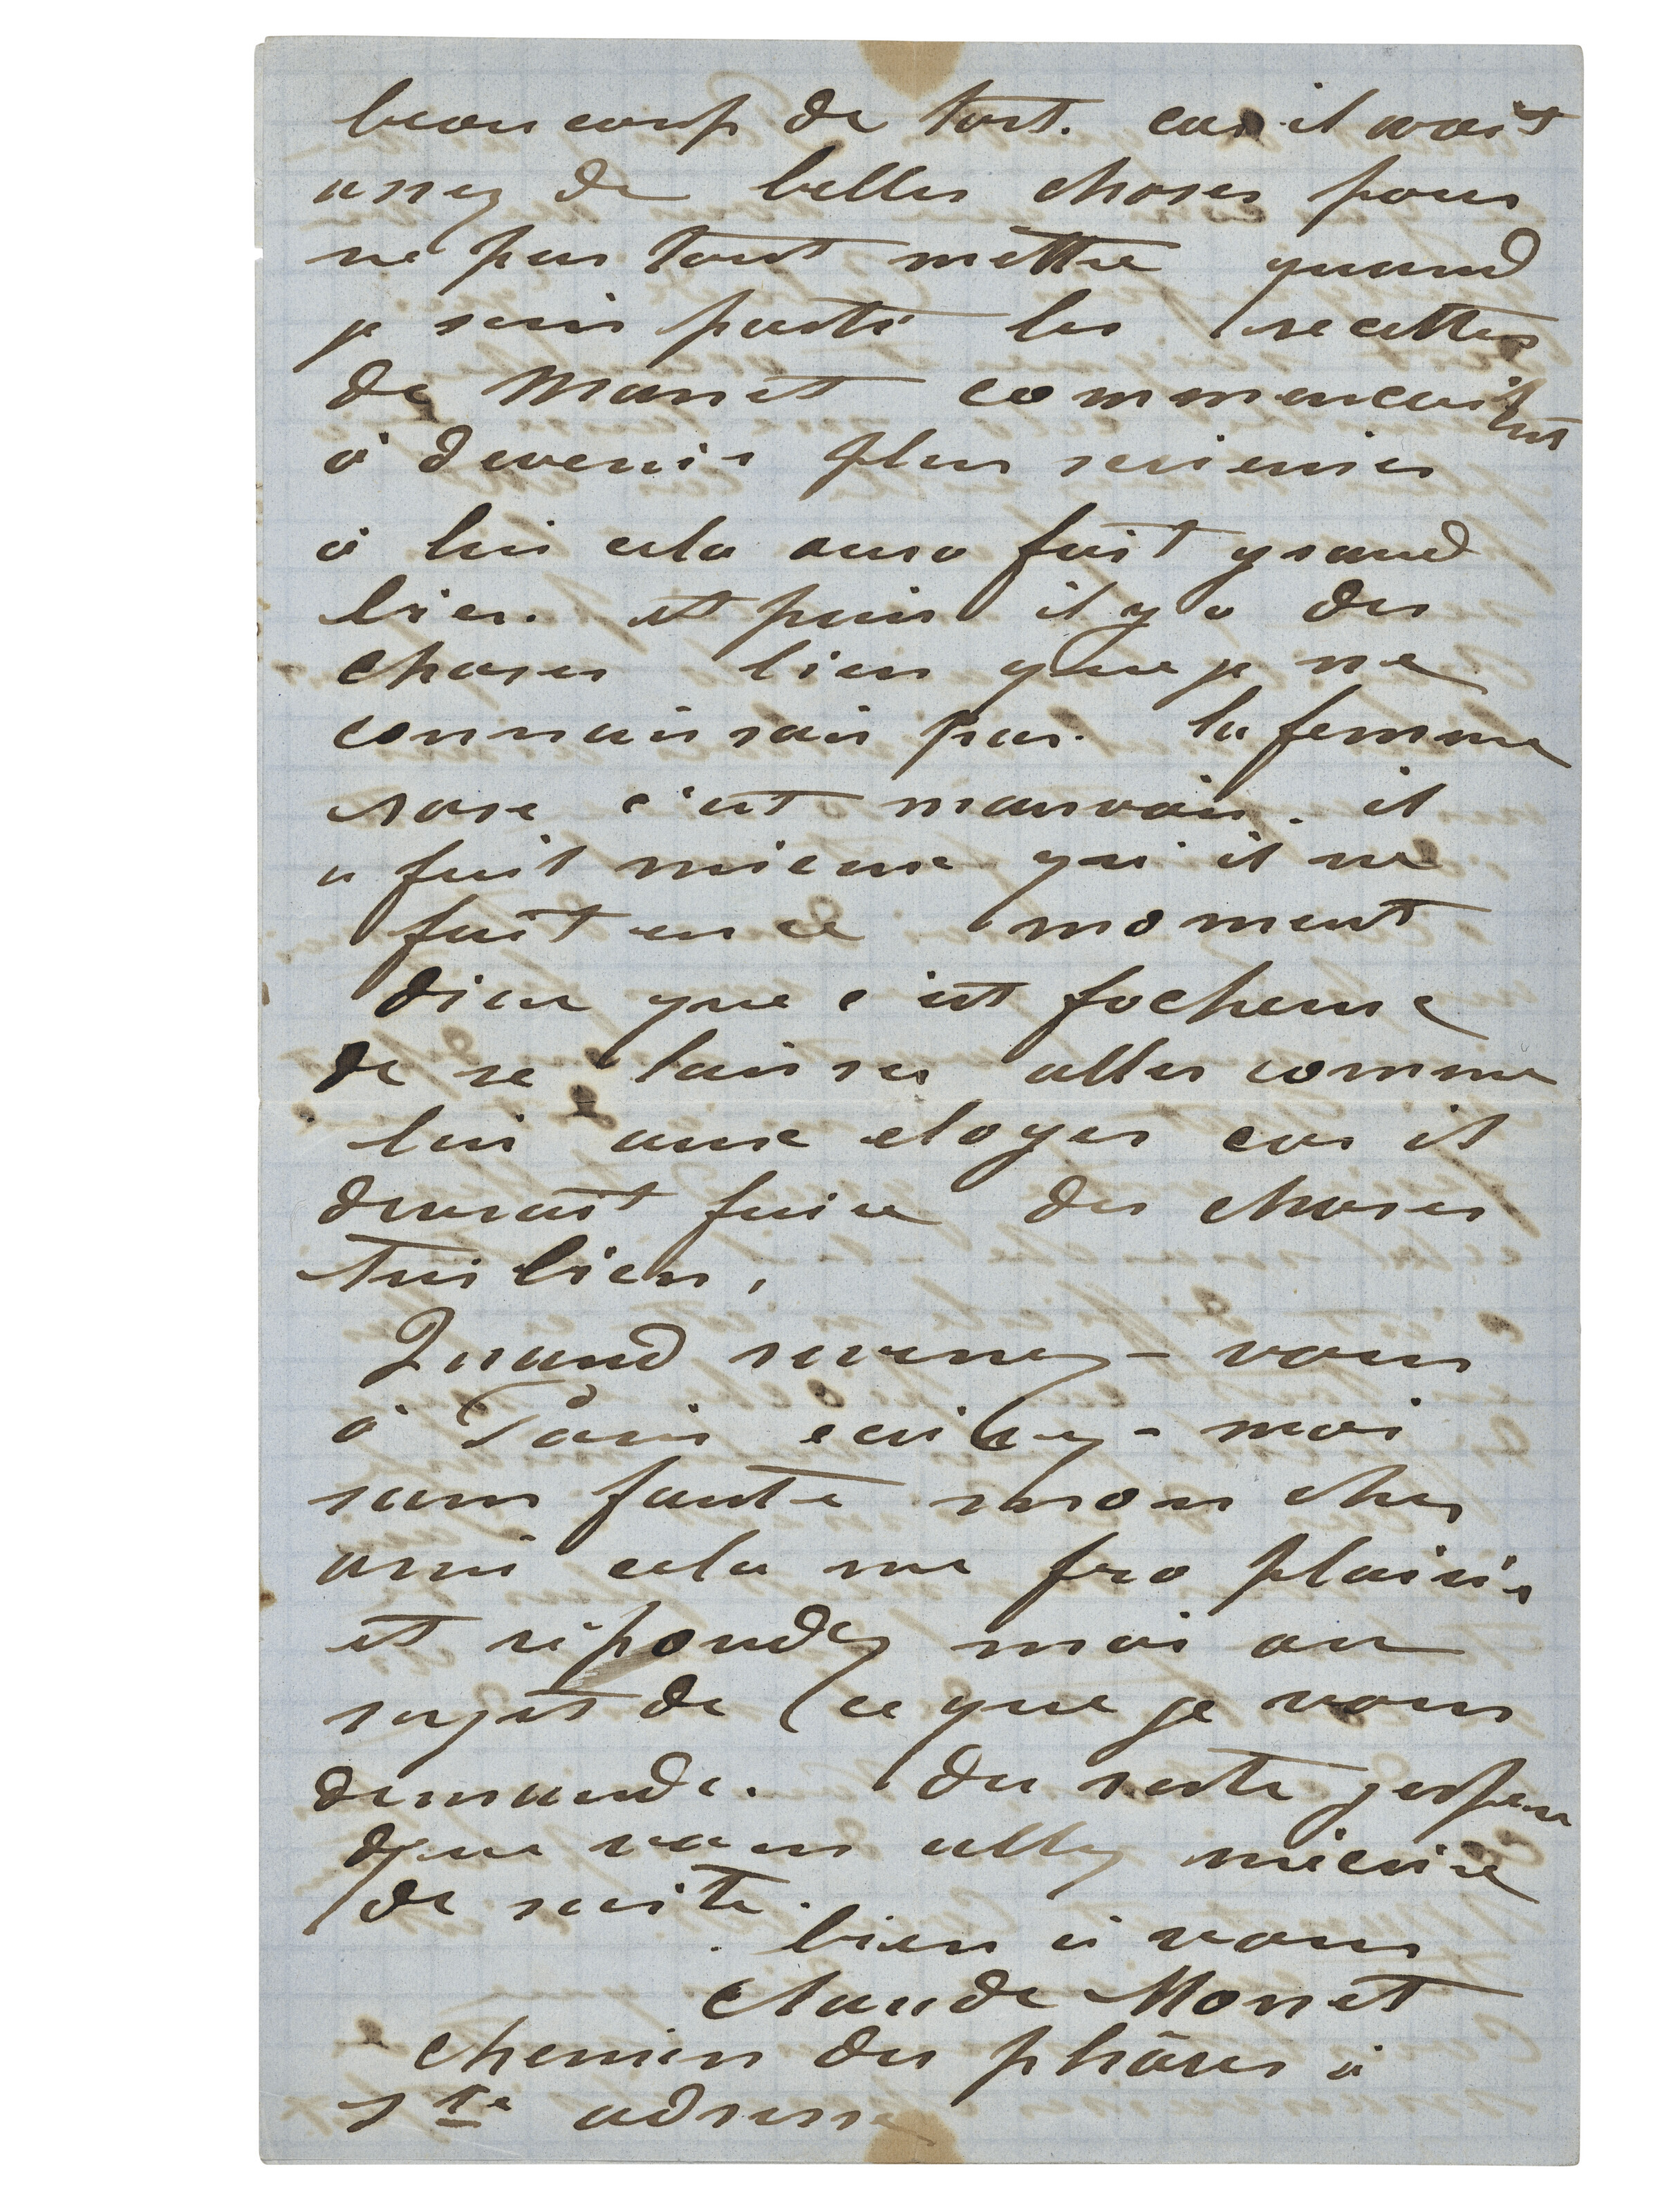 beaucoup de tort. car il avait
assez de belles choses pour
ne pas tout mettre quand
je suis parti les recettes
de Manet commencaient
à devenir plus serieuses
à lui cela aura fait grand
bien. et puis il y a des
choses bien que je ne
connaissais pas. la femme
rose c'est mauvais. il
a fait mieux qu'il ne
fait en ce moment
dieu que c'est facheux
de se laisser aller comme
lui aux eloges car il
devrait faire des choses
tres bien,
Quand revenez-vous
à Paris écrivez-moi
sans faute mon cher
ami cela me fra plaisir
et répondez moi au
sujet de ce que je vous
demande. du reste jespere
que vous allez mécrire
de suite.
bien à vous
Claude Monet
chemin des phâres à
Ste adresse